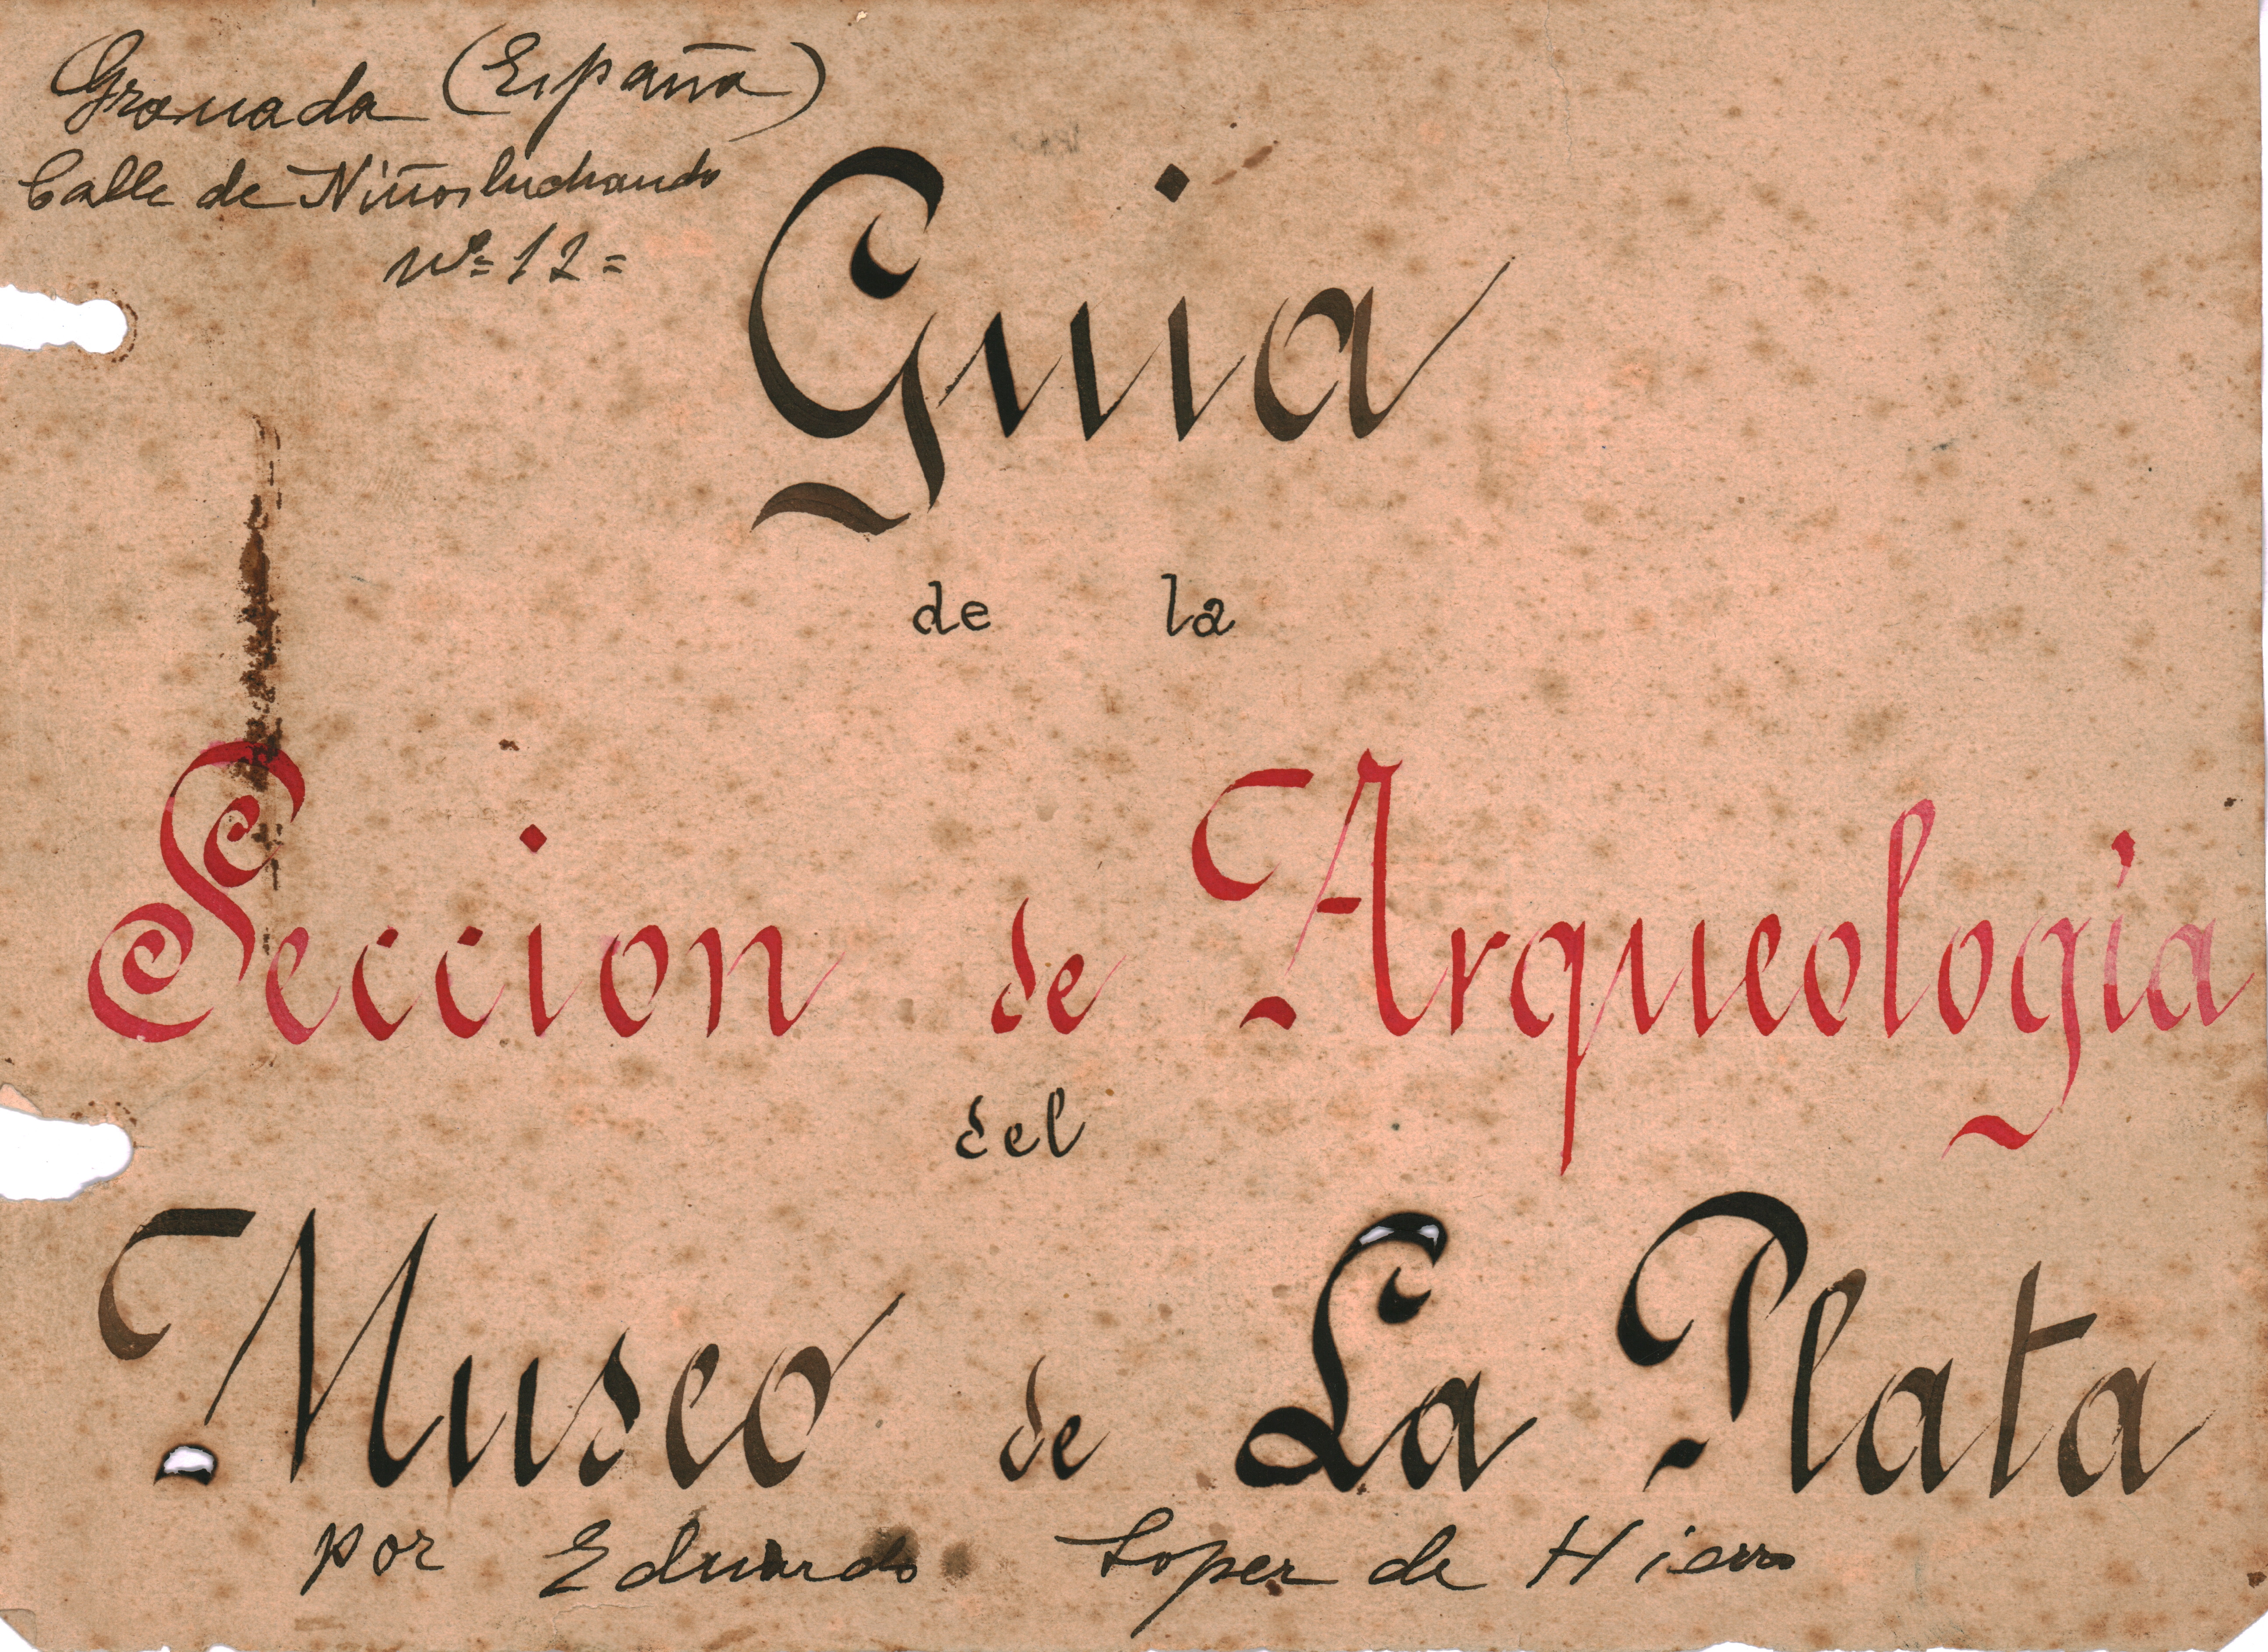 Granada (España)
Calle de Niños luchando
nº= 12=
Guia
de la
Seccion de Arqueologia
del
Museo de La Plata
por Eduardo Lopez de Hierro